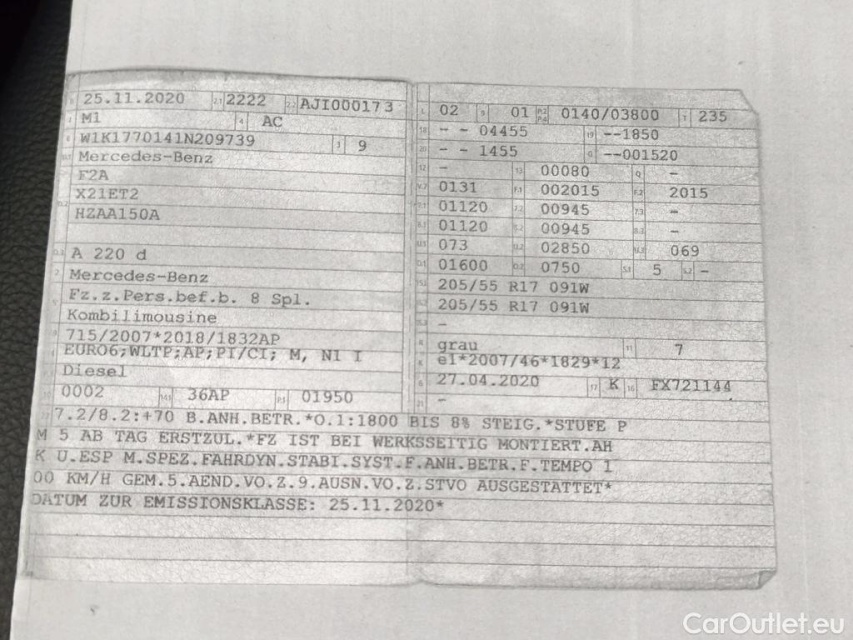 25.11.2020 2222 AJI000173
M1 AC
W1K1770141N209739 9
Mercedes-Benz
F2A
X21ET2
HZAA150A
A 220 d
Mercedes-Benz
Fz.z.Pers.bef.b. 8 Spl.
Kombilimousine
715/2007*2018/1832AP
EURO6;WLTP;AP;PI/CI; M, N1 I
Diesel
0002 36AP 01950
02 01 0140/03800 235
- - 04455 --1850
- - 1455 --001520
- 00080 -
0131 002015 2015
01120 00945 -
01120 00945 -
073 02850 069
01600 0750 5 -
205/55 R17 091W
205/55 R17 091W
-
grau 7
e1*2007/46*1829*12
27.04.2020 K FX721144
-
7.2/8.2:+70 B.ANH.BETR.*O.1:1800 BIS 8% STEIG.*STUFE P
M 5 AB TAG ERSTZUL.*FZ IST BEI WERKSSEITIG MONTIERT.AH
K U.ESP M.SPEZ.FAHRDYN.STABI.SYST.F.ANH.BETR.F.TEMPO 1
00 KM/H GEM.5.AEND.VO.Z.9.AUSN.VO.Z.STVO AUSGESTATTET*
DATUM ZUR EMISSIONSKLASSE: 25.11.2020*
CarOutlet.eu